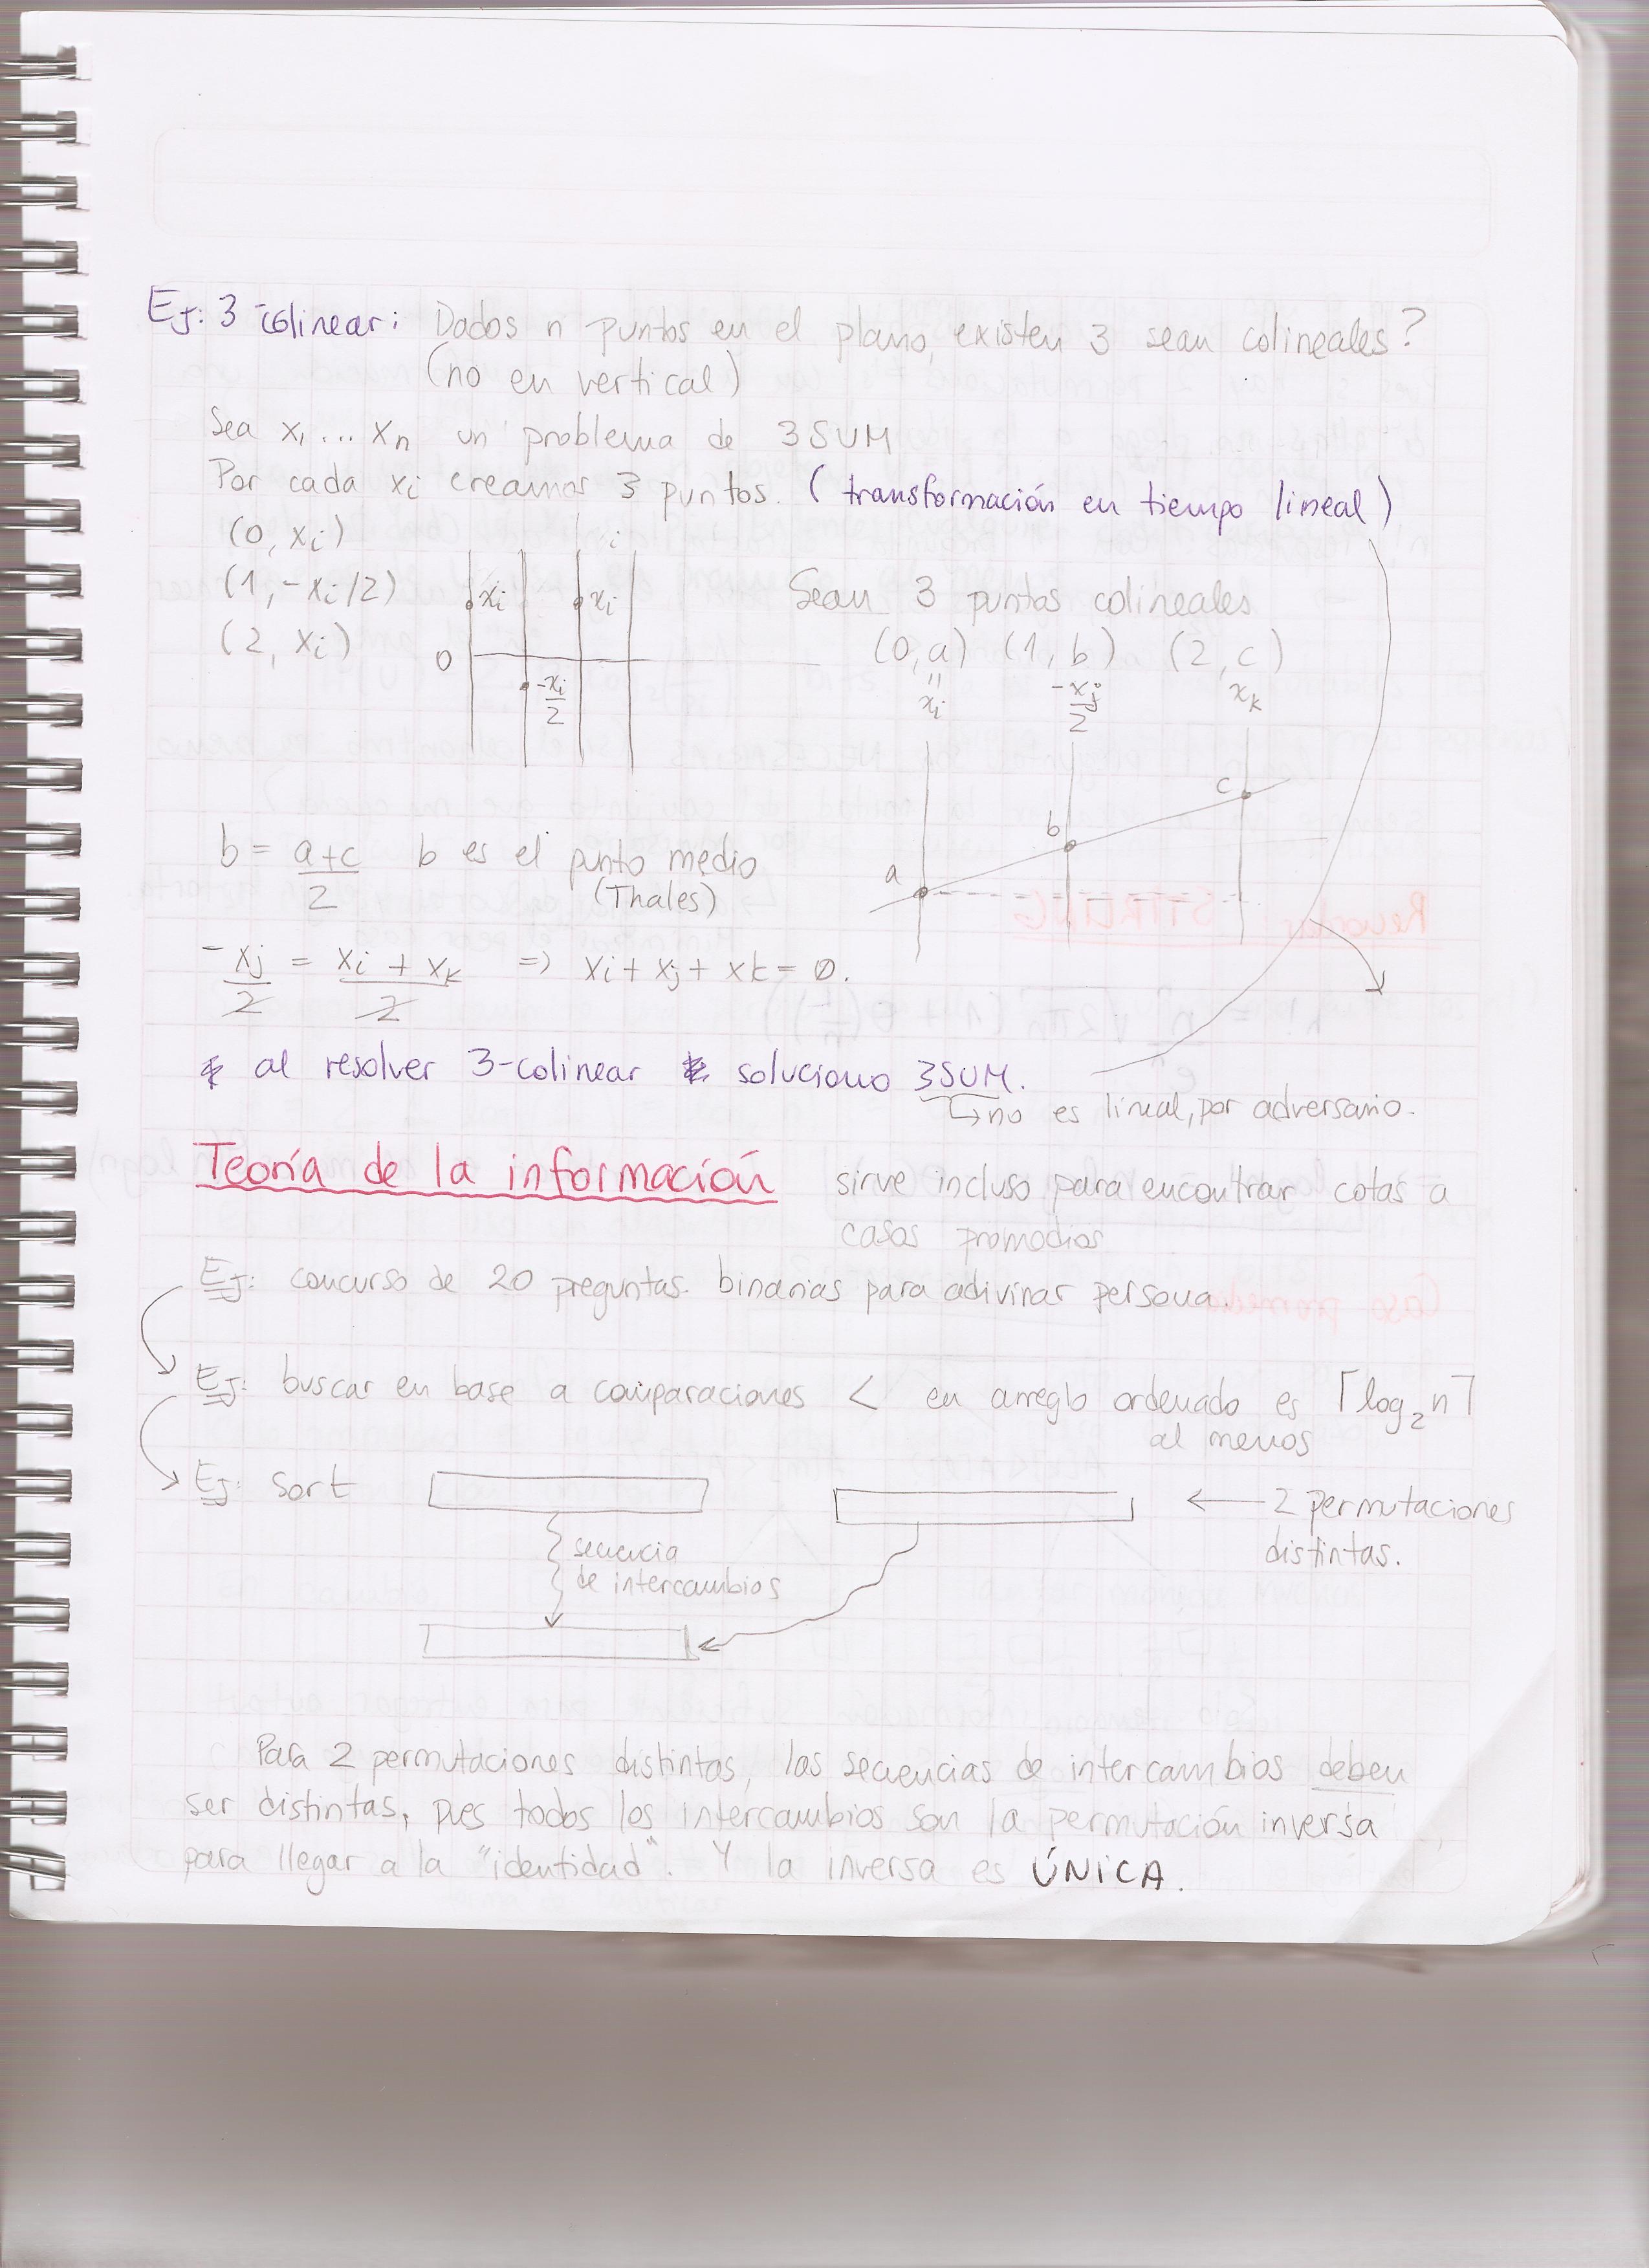 Ej: 3 colinear: Dados n puntos en el plano, existen 3 sean colineales?
(no en vertical)
Sea x₁ ... xₙ un problema de 3SUM
Por cada xᵢ creamos 3 puntos. (transformación en tiempo lineal)
(0, xᵢ)
(1, -xᵢ/2)
(2, xᵢ)
xᵢ
xᵢ
0
-xᵢ/2
Sean 3 puntos colineales
(0,a) (1,b) (2,c)
= xᵢ -xⱼ/2 xₖ
a b c
b = a+c/2 b es el punto medio
(Thales)
-xⱼ/2 = xᵢ + xₖ/2 => xᵢ + xⱼ + xk = 0.
* al resolver 3-colinear soluciono 3SUM.
↳ no es lineal, por adversario.
Teoría de la información sirve incluso para encontrar cotas a
casos promedios
Ej: concurso de 20 preguntas binarias para adivinar persona.
Ej: buscar en base a comparaciones < en arreglo ordenado es ⌈log₂n⌉
al menos
Ej: sort
← 2 permutaciones
distintas.
secuencia
de intercambios
Para 2 permutaciones distintas, las secuencias de intercambios deben
ser distintas, pues todos los intercambios son la permutación inversa
para llegar a la "identidad". Y la inversa es ÚNICA.